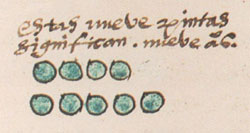 estas nueve pintas
significan . nueve aºs.